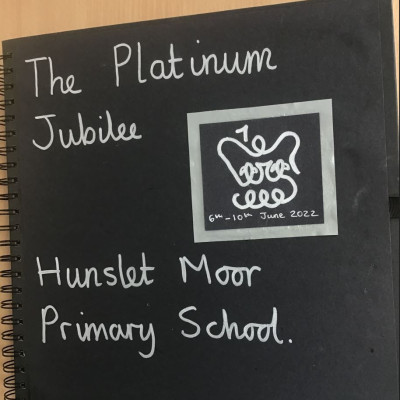 The Platinum
Jubilee
6th - 10th June 2022
Hunslet Moor
Primary School.